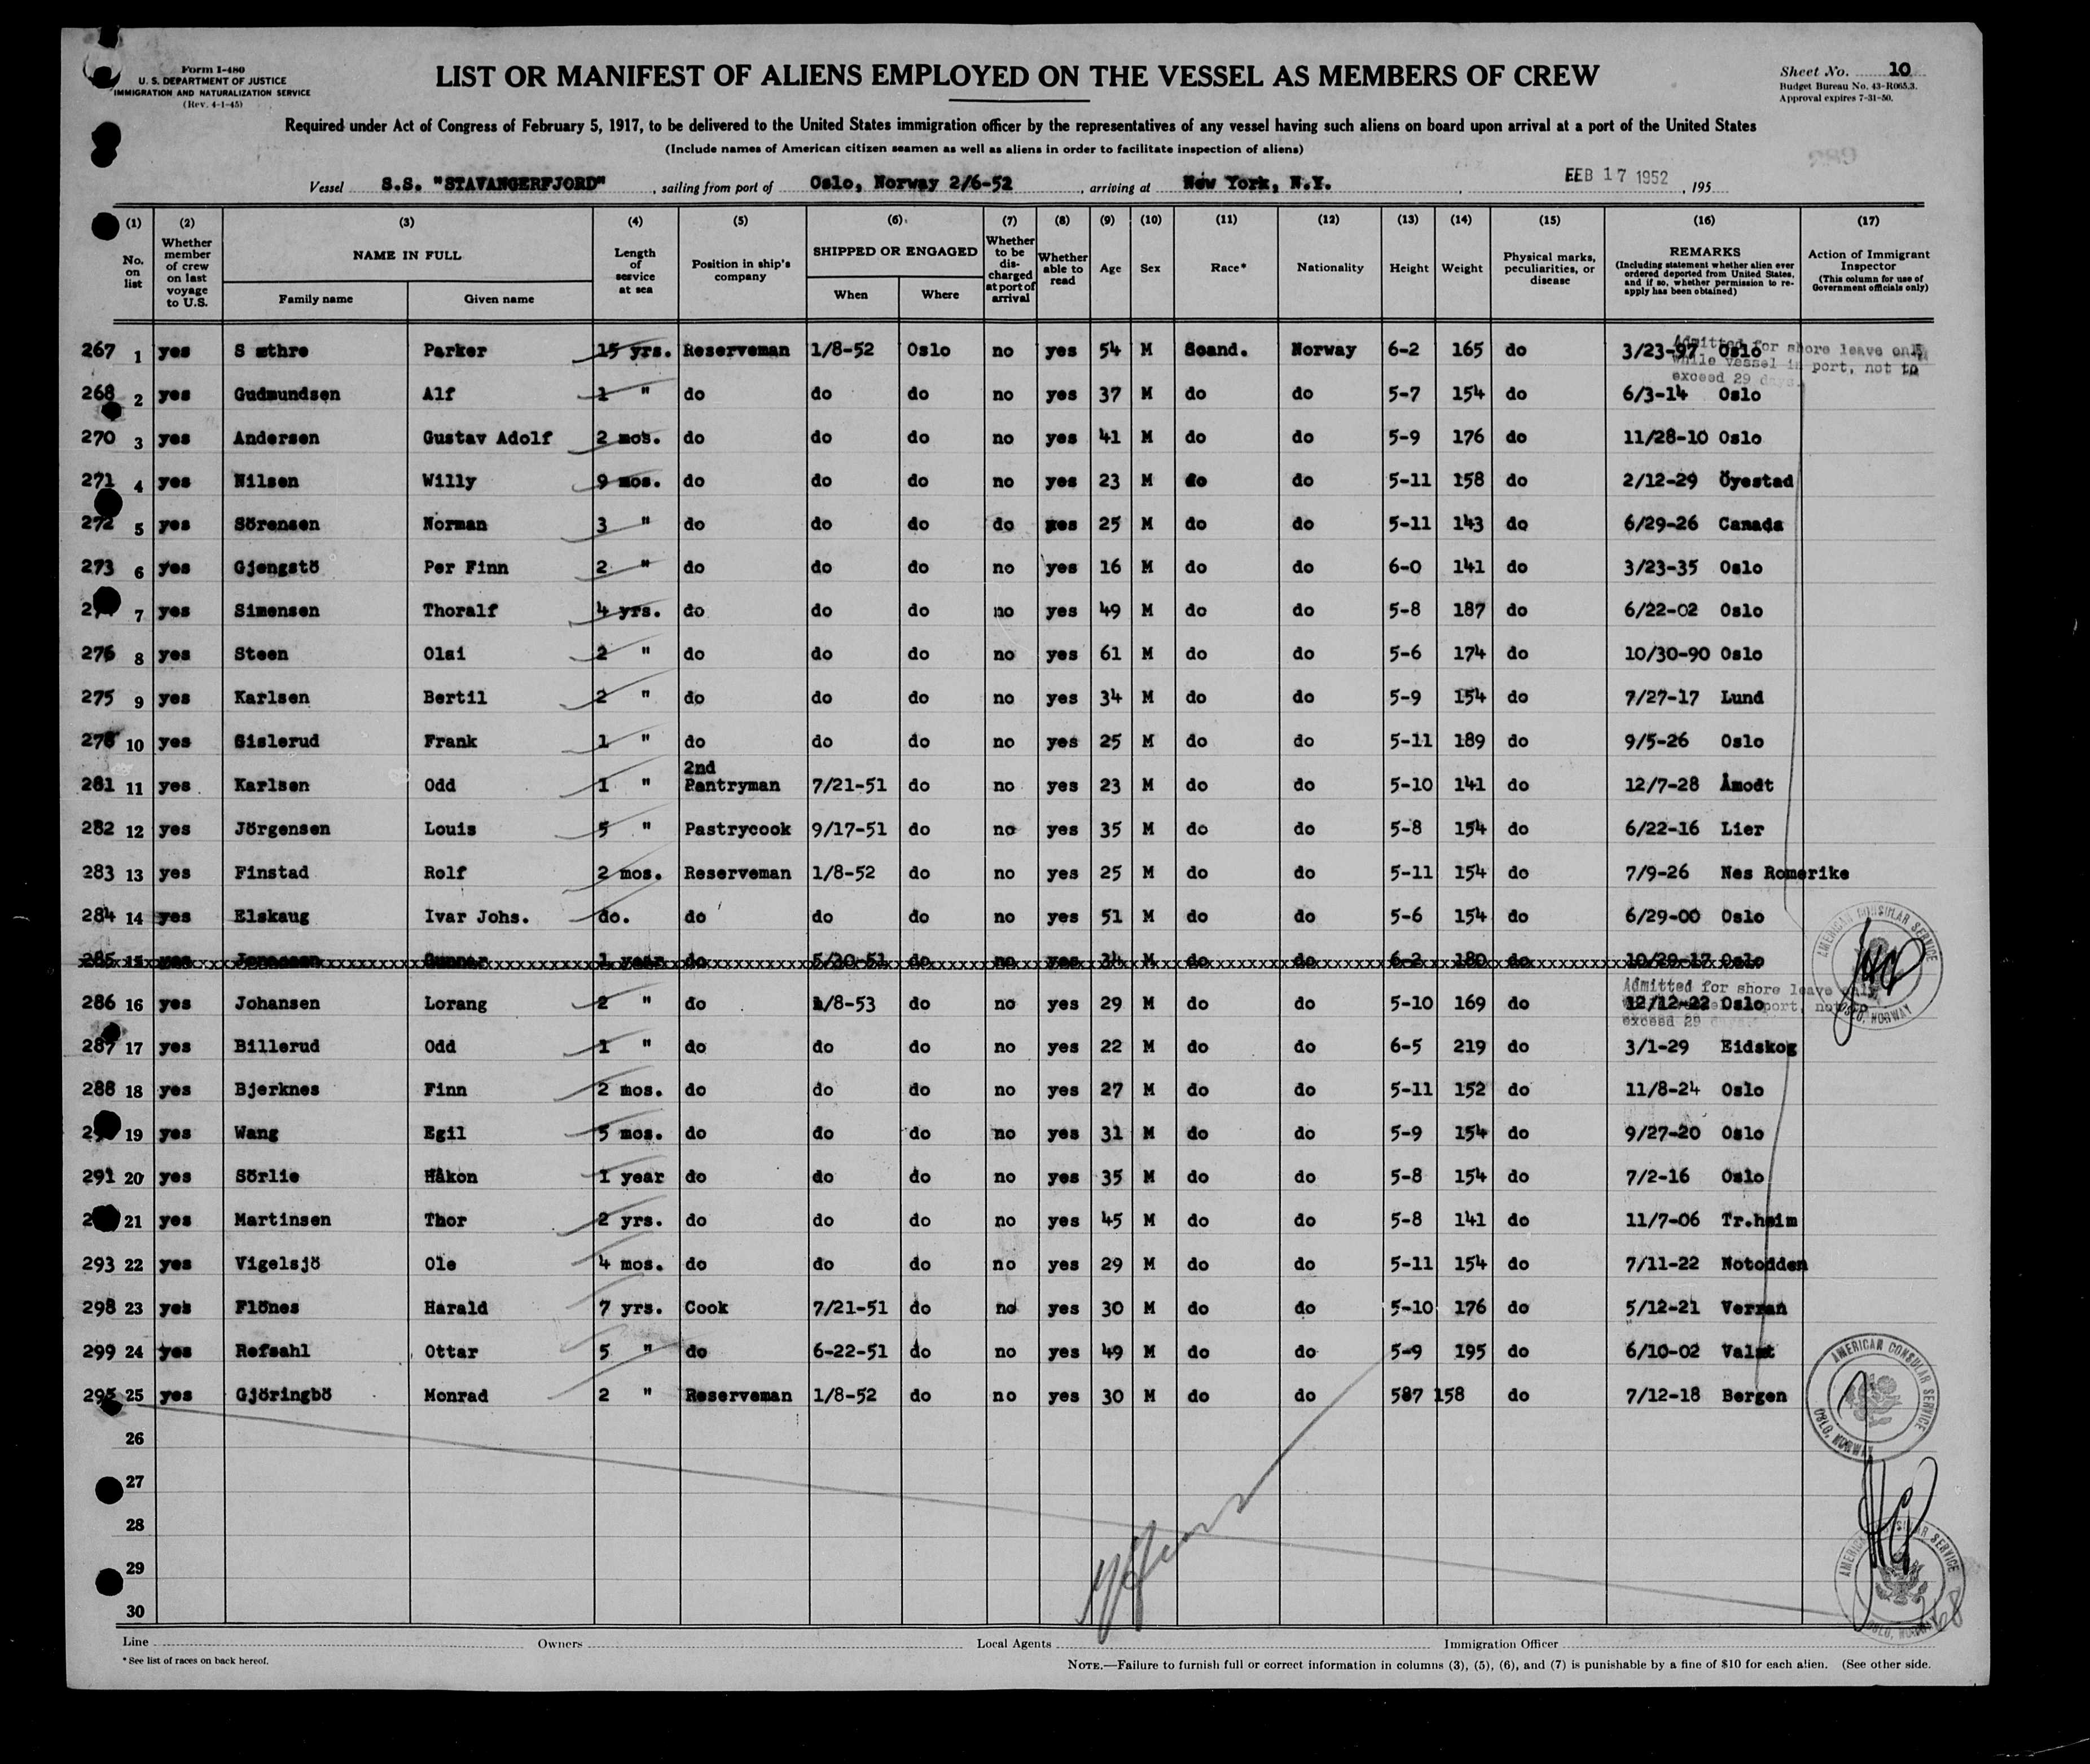 Form I-480
U. S. DEPARTMENT OF JUSTICE
IMMIGRATION AND NATURALIZATION SERVICE
(Rev. 4-1-45)
LIST OR MANIFEST OF ALIENS EMPLOYED ON THE VESSEL AS MEMBERS OF CREW
Sheet No. 10
Budget Bureau No. 43-R065.3.
Approval expires 7-31-50.
Required under Act of Congress of February 5, 1917, to be delivered to the United States immigration officer by the representatives of any vessel having such aliens on board upon arrival at a port of the United States
(Include names of American citizen seamen as well as aliens in order to facilitate inspection of aliens)
Vessel S.S. "STAVANGERFJORD", sailing from port of Oslo, Norway 2/6-52, arriving at New York, N.Y., FEB 17 1952, 195
(1) (2) (3) (4) (5) (6) (7) (8) (9) (10) (11) (12) (13) (14) (15) (16) (17)
No. on list
Whether member of crew on last voyage to U.S.
NAME IN FULL
Family name
Given name
Length of service at sea
Position in ship's company
SHIPPED OR ENGAGED
When
Where
Whether to be discharged at port of arrival
Whether able to read
Age
Sex
Race*
Nationality
Height
Weight
Physical marks, peculiarities, or disease
REMARKS
(Including statement whether alien ever ordered deported from United States, and if so, whether permission to re-apply has been obtained)
Action of Immigrant Inspector
(This column for use of Government officials only)
267 1 yes S æthre Parker 15 yrs. Reserveman 1/8-52 Oslo no yes 54 M Scand. Norway 6-2 165 do 3/23-97 Oslo
Admitted for shore leave only
while vessel in port, not to
exceed 29 days.
268 2 yes Gudmundsen Alf 1 " do do do no yes 37 M do do 5-7 154 do 6/3-14 Oslo
270 3 yes Andersen Gustav Adolf 2 mos. do do do no yes 41 M do do 5-9 176 do 11/28-10 Oslo
271 4 yes Nilsen Willy 9 mos. do do do no yes 23 M do do 5-11 158 do 2/12-29 Öyestad
272 5 yes Sörensen Norman 3 " do do do do yes 25 M do do 5-11 143 do 6/29-26 Canada
273 6 yes Gjengstö Per Finn 2 " do do do no yes 16 M do do 6-0 141 do 3/23-35 Oslo
7 yes Simensen Thoralf 4 yrs. do do do no yes 49 M do do 5-8 187 do 6/22-02 Oslo
276 8 yes Steen Olai 2 " do do do no yes 61 M do do 5-6 174 do 10/30-90 Oslo
275 9 yes Karlsen Bertil 2 " do do do no yes 34 M do do 5-9 154 do 7/27-17 Lund
278 10 yes Gislerud Frank 1 " do do do no yes 25 M do do 5-11 189 do 9/5-26 Oslo
281 11 yes Karlsen Odd 1 " 2nd Pantryman 7/21-51 do no yes 23 M do do 5-10 141 do 12/7-28 Åmodt
282 12 yes Jörgensen Louis 5 " Pastrycook 9/17-51 do no yes 35 M do do 5-8 154 do 6/22-16 Lier
283 13 yes Finstad Rolf 2 mos. Reserveman 1/8-52 do no yes 25 M do do 5-11 154 do 7/9-26 Nes Romerike
284 14 yes Elskaug Ivar Johs. do. do do do no yes 51 M do do 5-6 154 do 6/29-00 Oslo
285 15 yes Gunnar 1 year do 5/30-51 do no yes 34 M do do 6-2 180 do 10/29-17 Oslo
286 16 yes Johansen Lorang 2 " do 1/8-53 do no yes 29 M do do 5-10 169 do 12/12-22 Oslo
Admitted for shore leave only
port, not
exceed 29 days.
287 17 yes Billerud Odd 1 " do do do no yes 22 M do do 6-5 219 do 3/1-29 Eidskog
288 18 yes Bjerknes Finn 2 mos. do do do no yes 27 M do do 5-11 152 do 11/8-24 Oslo
19 yes Wang Egil 5 mos. do do do no yes 31 M do do 5-9 154 do 9/27-20 Oslo
291 20 yes Sörlie Håkon 1 year do do do no yes 35 M do do 5-8 154 do 7/2-16 Oslo
21 yes Martinsen Thor 2 yrs. do do do no yes 45 M do do 5-8 141 do 11/7-06 Tr.heim
293 22 yes Vigelsjö Ole 4 mos. do do do no yes 29 M do do 5-11 154 do 7/11-22 Notodden
298 23 yes Flönes Harald 7 yrs. Cook 7/21-51 do no yes 30 M do do 5-10 176 do 5/12-21 Verran
299 24 yes Refsahl Ottar 5 " do 6-22-51 do no yes 49 M do do 5-9 195 do 6/10-02
295 25 yes Gjöringbö Monrad 2 " Reserveman 1/8-52 do no yes 30 M do do 587 158 do 7/12-18 Bergen
26
27
28
29
30
AMERICAN CONSULAR SERVICE
OSLO, NORWAY
AMERICAN CONSULAR SERVICE
OSLO, NORWAY
AMERICAN CONSULAR SERVICE
OSLO, NORWAY
Line Owners Local Agents Immigration Officer
* See list of races on back hereof.
NOTE.—Failure to furnish full or correct information in columns (3), (5), (6), and (7) is punishable by a fine of $10 for each alien. (See other side.